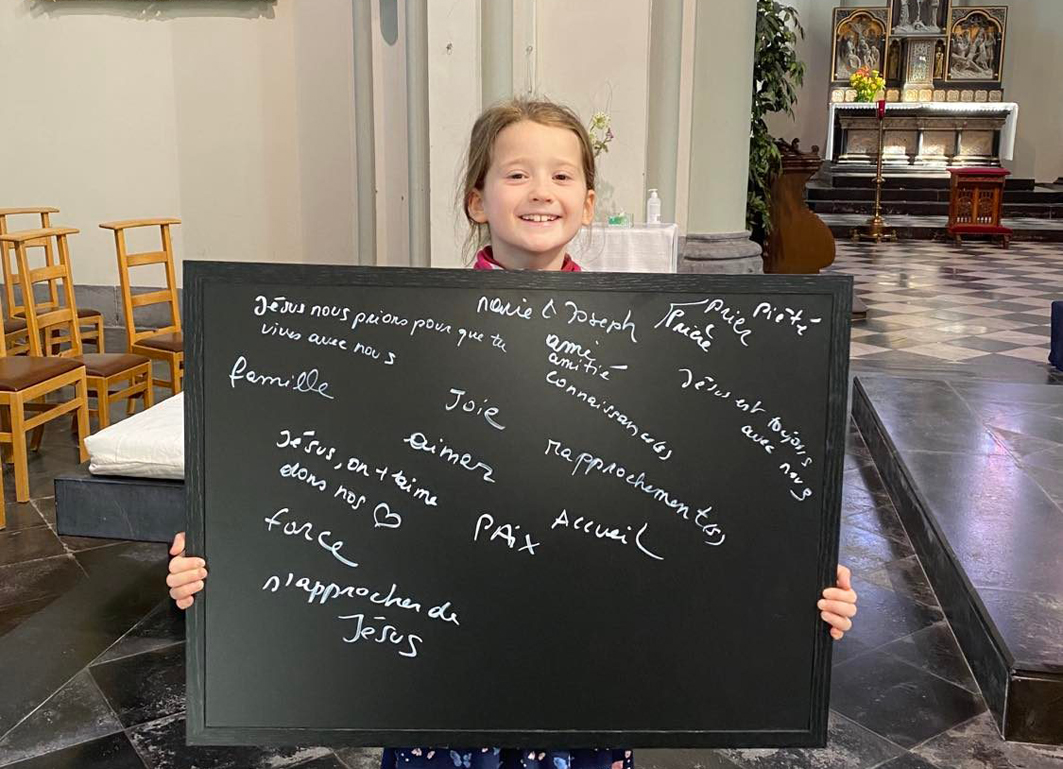 Jésus nous prions pour que tu
vives avec nous
Marie & Joseph
Prier
Prière
Piété
ami
amitié
connaissance(s)
Jésus est toujours
avec nous
famille
Joie
aimer
rapprochement(s)
Jésus, on t'aime
dans nos ♡
force
PAix
Accueil
s'approcher de
Jésus